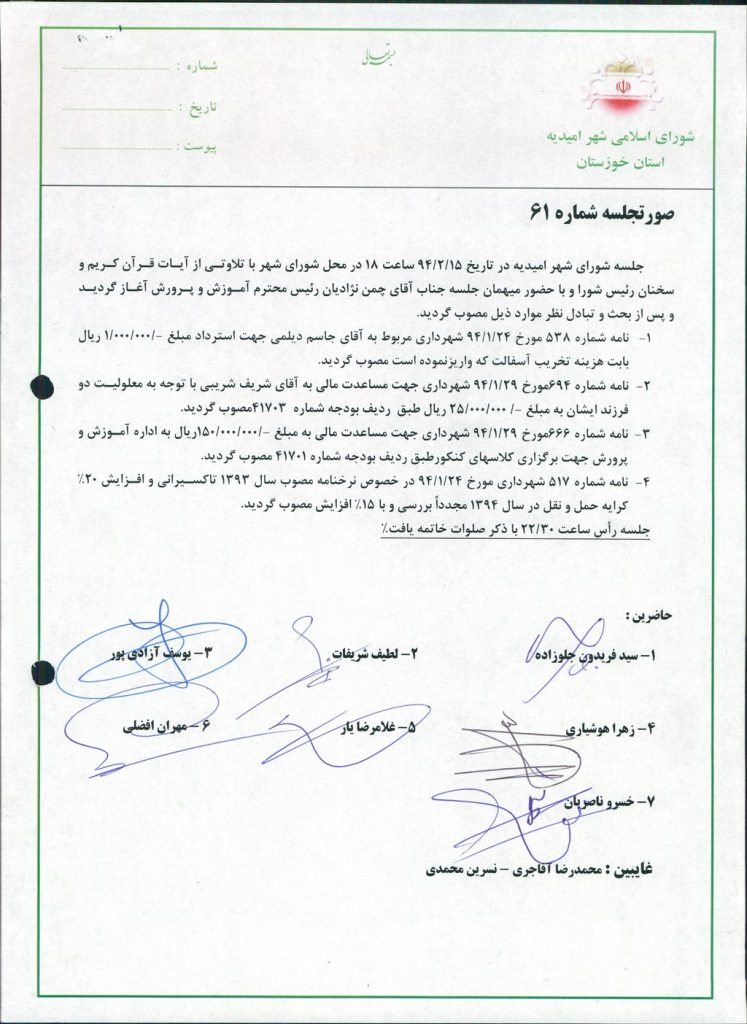 بسمه تعالی
شماره : ........................
تاریخ : ........................
پیوست : ........................
شورای اسلامی شهر امیدیه
استان خوزستان
صورتجلسه شماره ۶۱
جلسه شورای شهر امیدیه در تاریخ ۹۴/۲/۱۵ ساعت ۱۸ در محل شورای شهر با تلاوتی از آیات قرآن کریم و
سخنان رئیس شورا و با حضور میهمان جلسه جناب آقای چمن نژادیان رئیس محترم آموزش و پرورش آغاز گردید
و پس از بحث و تبادل نظر موارد ذیل مصوب گردید.
۱- نامه شماره ۵۳۸ مورخ ۹۴/۱/۲۴ شهرداری مربوط به آقای جاسم دیلمی جهت استرداد مبلغ -/۱/۰۰۰/۰۰۰ ریال
بابت هزینه تخریب آسفالت که واریزنموده است مصوب گردید.
۲- نامه شماره ۶۹۴مورخ ۹۴/۱/۲۹ شهرداری جهت مساعدت مالی به آقای شریف شریبی با توجه به معلولیت دو
فرزند ایشان به مبلغ -/ ۲۵/۰۰۰/۰۰۰ ریال طبق ردیف بودجه شماره ۴۱۷۰۳مصوب گردید.
۳- نامه شماره ۶۶۶مورخ ۹۴/۱/۲۹ شهرداری جهت مساعدت مالی به مبلغ -/۱۵۰/۰۰۰/۰۰۰ریال به اداره آموزش و
پرورش جهت برگزاری کلاسهای کنکورطبق ردیف بودجه شماره ۴۱۷۰۱ مصوب گردید.
۴- نامه شماره ۵۱۷ شهرداری مورخ ۹۴/۱/۲۴ در خصوص نرخنامه مصوب سال ۱۳۹۳ تاکسیرانی و افزایش ۲۰٪
کرایه حمل و نقل در سال ۱۳۹۴ مجدداً بررسی و با ۱۵٪ افزایش مصوب گردید.
جلسه رأس ساعت ۲۲/۳۰ با ذکر صلوات خاتمه یافت٪
حاضرین :
۱- سید فریدون جلوزاده ۲- لطیف شریفات ۳- یوسف آزادی پور
۴- زهرا هوشیاری ۵- غلامرضا یار ۶- مهران افضلی
۷- خسرو ناصریان
غایبین : محمدرضا آقاجری - نسرین محمدی